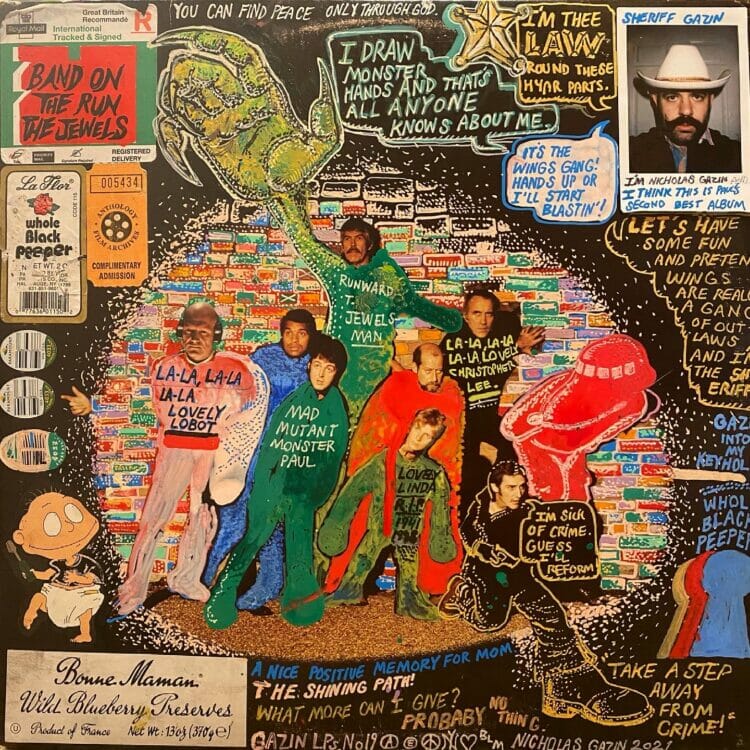 Royal Mail
Great Britain
Recommandé
International
Tracked & Signed
R
BAND ON
THE RUN
THE JEWELS
REGISTERED
DELIVERY
YOU CAN FIND PEACE ONLY THROUGH GOD
I DRAW
MONSTER
HANDS AND THATS
ALL ANYONE
KNOWS ABOUT ME.
I'M THEE
LAW
ROUND THESE
HYAR PARTS.
SHERIFF GAZIN
I'M NICHOLAS GAZIN AND
I THINK THIS IS PAUL'S
SECOND BEST ALBUM
IT'S THE
WINGS GANG!
HANDS UP OR
I'LL START
BLASTIN'!
La Flor
CODE 115
whole
Black
PEEPER
005434
ANTHOLOGY
FILM ARCHIVES
COMPLIMENTARY
ADMISSION
LET'S HAVE
SOME FUN
AND PRETEN
WINGS
ARE REAL
A GANG
OF OUT
LAWS
AND I'
THE SH
ERIFF
RUNWARD
T. JEWELS
MAN.
LA-LA, LA-LA
LA-LA,
LOVELY
LOBOT
MAD
MUTANT
MONSTER
PAUL
LA-LA, LA-LA
LA-LA LOVELY
CHRISTOPHER
LEE.
LOVELY
LINDA
R.I.P.
1941
I'M SICK
OF CRIME.
GUESS
I'LL
REFORM
GAZ
INTO
MY
KEYHOL
WHOL
BLAC
PEEPE
Bonne Maman
Wild Blueberry Preserves
U Product of France Net Wt: 13oz (370g e)
A NICE POSITIVE MEMORY FOR MOM
THE SHINING PATH!
WHAT MORE CAN I GIVE?
PROBABY NO
THING.
GAZIN LPs No 19
BLM
NICHOLAS GAZIN
TAKE A STEP
AWAY
FROM
CRIME!